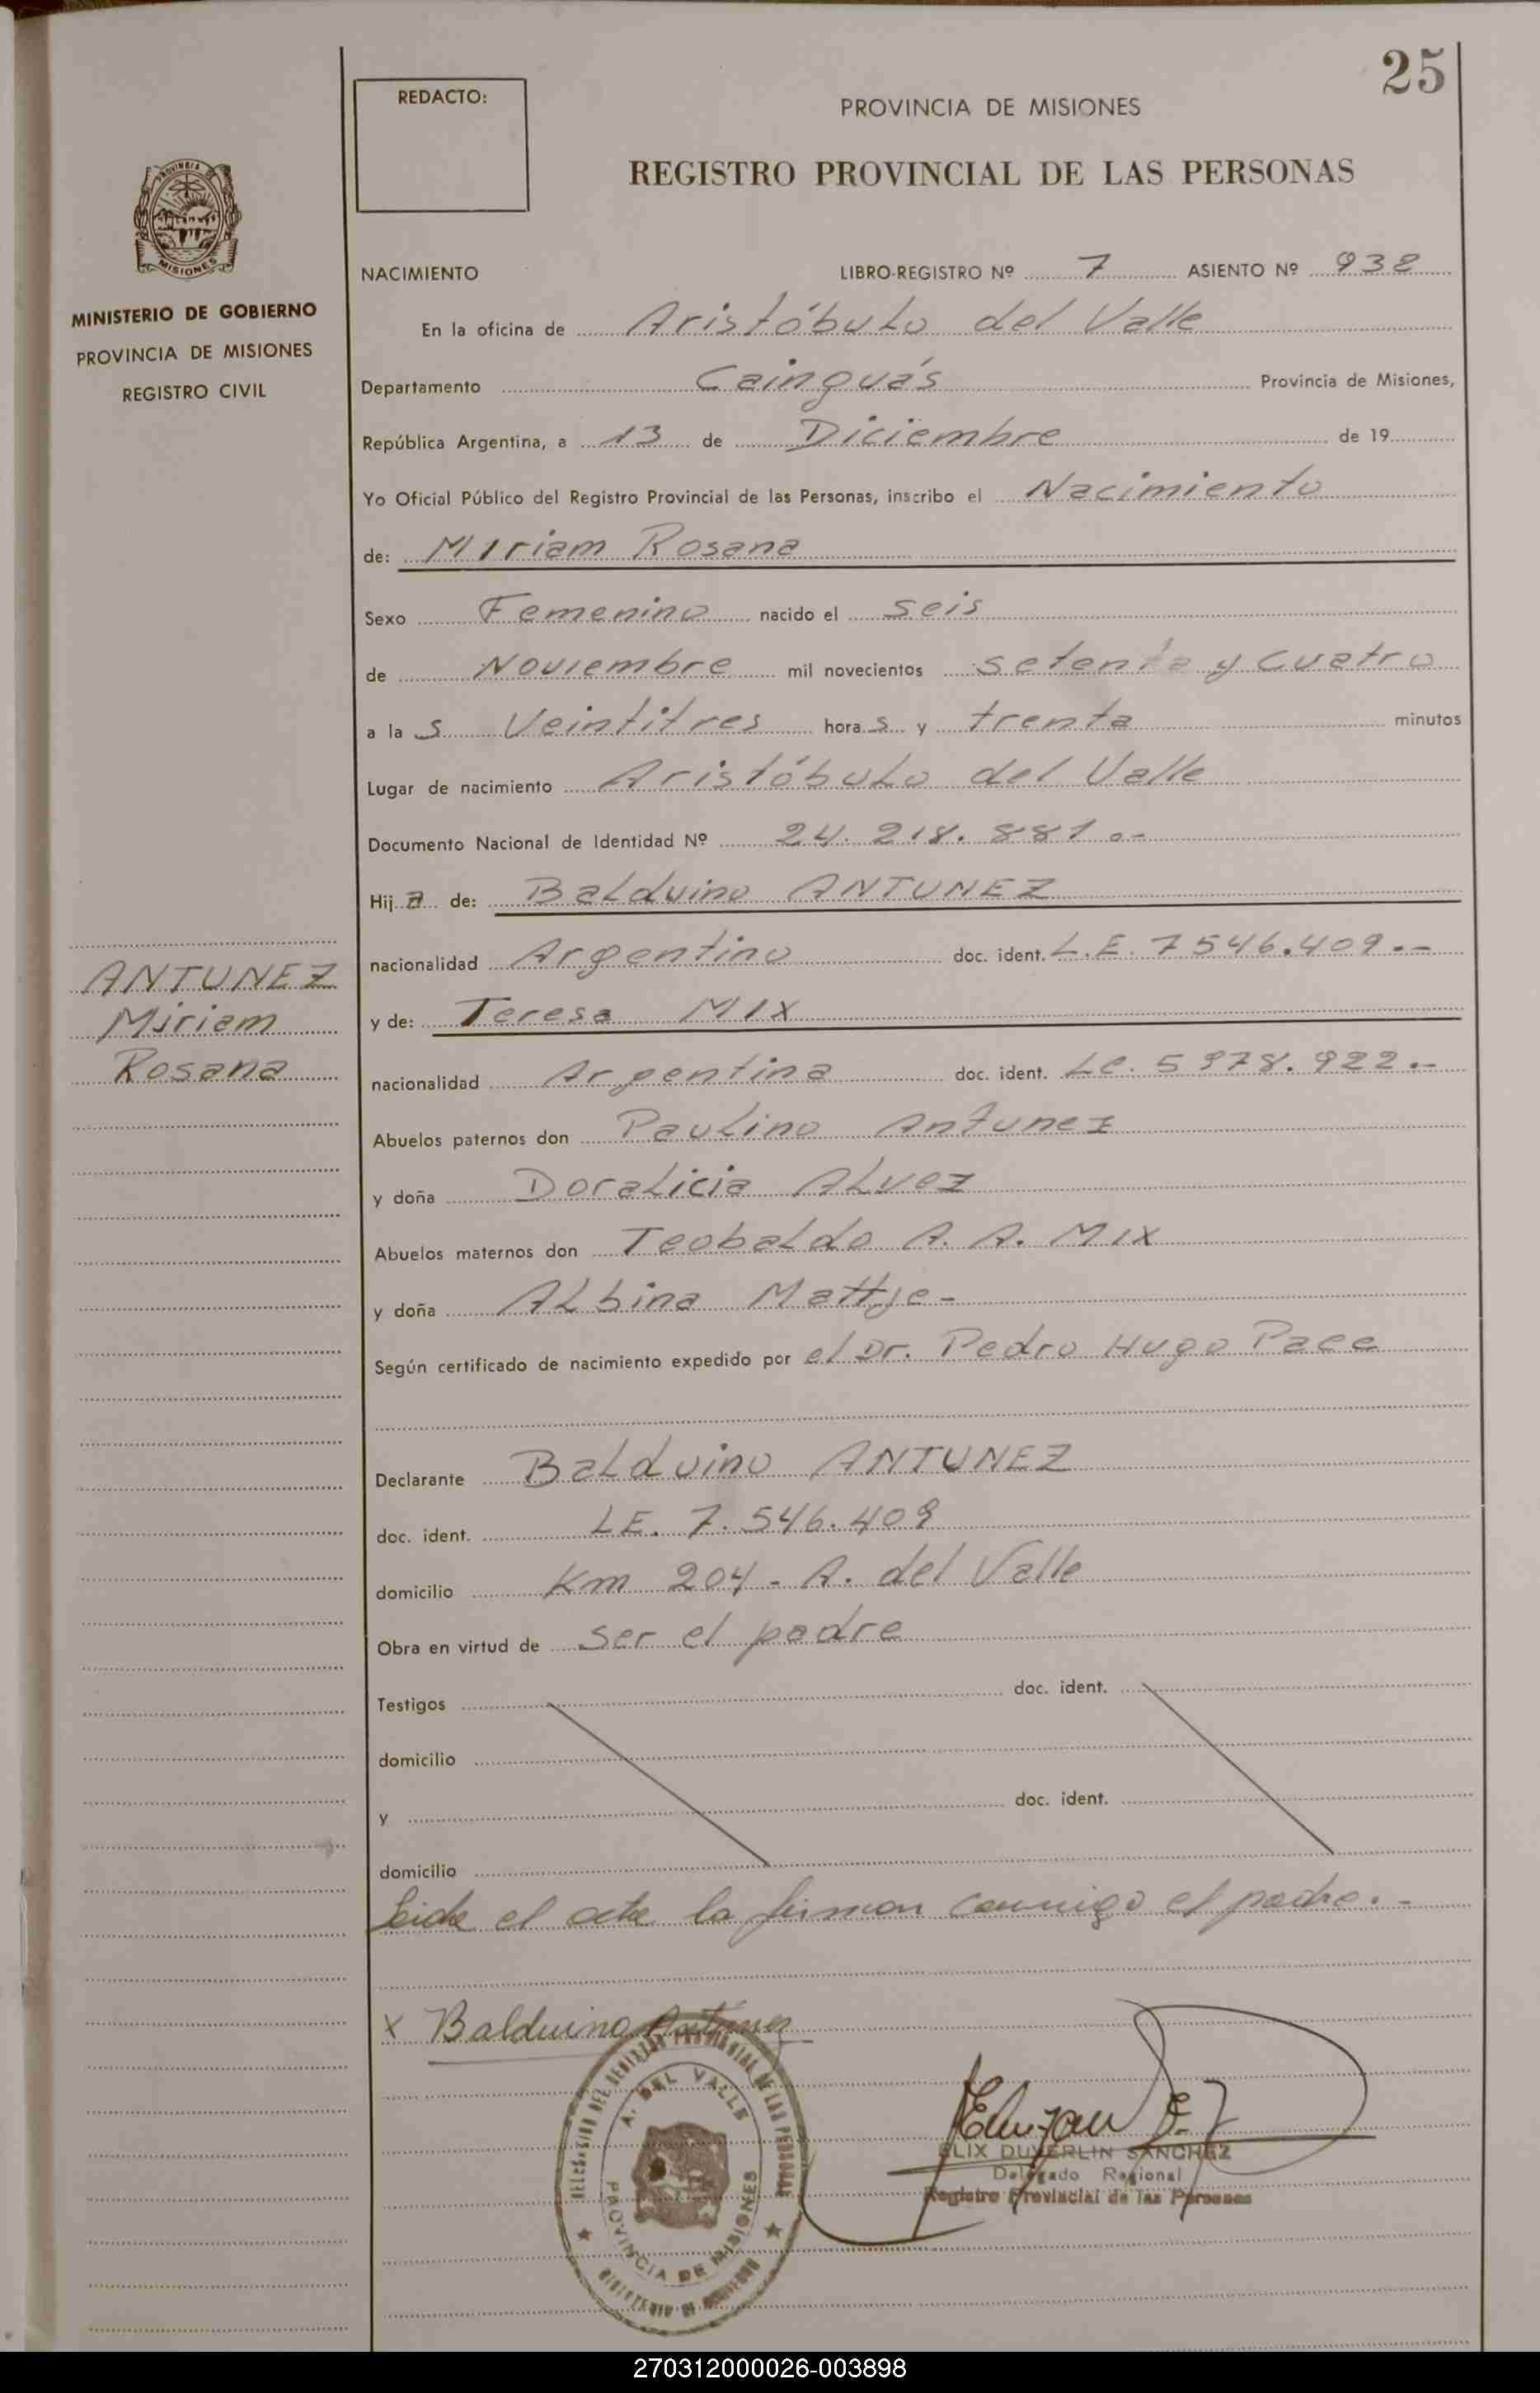 25
REDACTO:
PROVINCIA DE MISIONES
REGISTRO PROVINCIAL DE LAS PERSONAS
PROVINCIA DE
MISIONES
MINISTERIO DE GOBIERNO
PROVINCIA DE MISIONES
REGISTRO CIVIL
NACIMIENTO LIBRO-REGISTRO Nº 7 ASIENTO Nº 938
En la oficina de Aristóbulo del Valle
Departamento Cainguás Provincia de Misiones,
República Argentina, a 13 de Diciembre de 19
Yo Oficial Público del Registro Provincial de las Personas, inscribo el Nacimiento
de: Miriam Rosana
Sexo Femenino nacido el seis
de Noviembre mil novecientos setenta y cuatro
a la s Veintitres hora s y trenta minutos
Lugar de nacimiento Aristóbulo del Valle
Documento Nacional de Identidad Nº 24.218.881.-
Hij a de: Balduino ANTUNEZ
nacionalidad Argentino doc. ident. L.E. 7546.409.-
y de: Teresa MIX
nacionalidad Argentina doc. ident. LC. 5978.922.-
Abuelos paternos don Paulino Antunez
y doña Doralicia ALvez
Abuelos maternos don Teobaldo A. A. MIX
y doña ALbina Mattje-
Según certificado de nacimiento expedido por el Dr. Pedro Hugo Pace
ANTUNEZ
Miriam
Rosana
Declarante Balduino ANTUNEZ
doc. ident. LE. 7.546.409
domicilio Km 204 - A. del Valle
Obra en virtud de ser el padre
Testigos doc. ident.
domicilio
y doc. ident.
domicilio
Leida el acta la firman conmigo el padre.-
x Balduino Antunez
DELEGACION DEL REGISTRO PROVINCIAL DE LAS PERSONAS
A. DEL VALLE
PROVINCIA DE MISIONES
MINISTERIO DE GOBIERNO
ELIX DUVERLIN SANCHEZ
Delegado Regional
Registro Provincial de las Personas
270312000026-003898